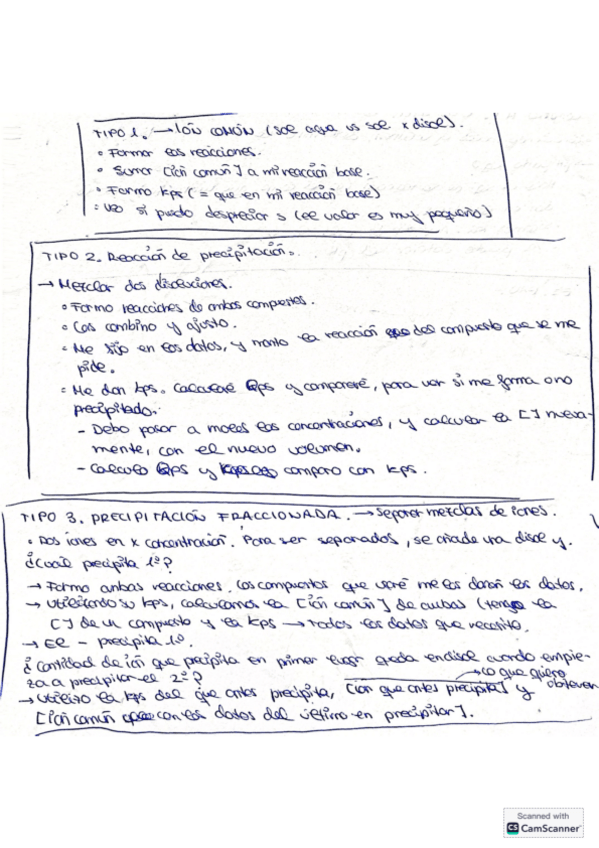 TIPO 1. → IÓN COMÚN (sol agua vs sol x disol).
• Formar las reacciones.
• Sumar [ión común] a mi reacción base.
• Formo Kps (= que en mi reacción base)
• Veo si puedo despreciar s (el valor es muy pequeño)
TIPO 2. Reacción de precipitación.
→ Mezclar dos disoluciones.
• Formo reacciones de ambos compuestos.
• Las combino y ajusto.
• Me fijo en los datos, y monto la reacción del compuesto que se me
pide.
• Me dan kps. Calcularé Qps y compararé, para ver si me forma o no
precipitado.
- Debo pasar a moles las concentraciones, y calcular la [ ] nueva-
mente, con el nuevo volumen.
- Calculo Qps y comparo con kps.
TIPO 3. PRECIPITACIÓN FRACCIONADA. → Separar mezclas de iones.
• Dos iones en x concentración. Para ser separados, se añade una disol y.
¿Cuál precipita 1º?
→ Formo ambas reacciones. Los compuestos que usaré me los darán los datos.
→ Utilizando su kps, calculamos la [ión común] de ambas (tengo la
[ ] de un compuesto y la kps → todos los datos que necesito.
→ El - precipita 1º.
¿Cantidad de ión que precipita en primer lugar queda en disol cuando empie-
za a precipitar el 2º?
→ lo que quiero
obtener
→ Utilizo la kps del que antes precipita, [ion que antes precipita] y
[ión común con los datos del último en precipitar].
Scanned with
CS CamScanner